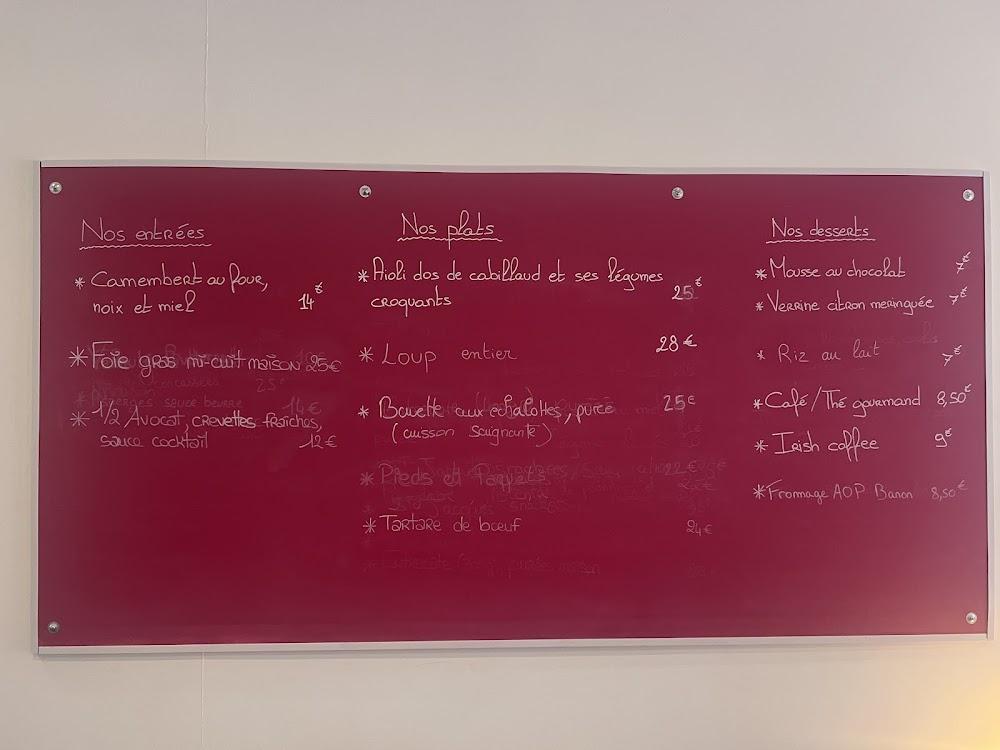 Nos entrées
* Camembert au four,
noix et miel 14€
* Foie gras mi-cuit maison 25€
* 1/2 Avocat, crevettes fraîches,
sauce cocktail 12€
Nos plats
* Aioli dos de cabillaud et ses légumes
croquants 25€
* Loup entier 28€
* Bavette aux echalottes, purée
(cuisson saignante) 25€
* Pieds et Paquets
* Tartare de bœuf 24€
Nos desserts
* Mousse au chocolat 7€
* Verrine citron meringuée 7€
* Riz au lait 7€
* Café/Thé gourmand 8,50€
* Irish coffee 9€
* Fromage AOP Banon 8,50€